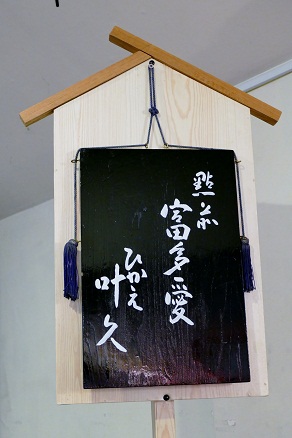 點前
富多愛
ひかえ
叶久